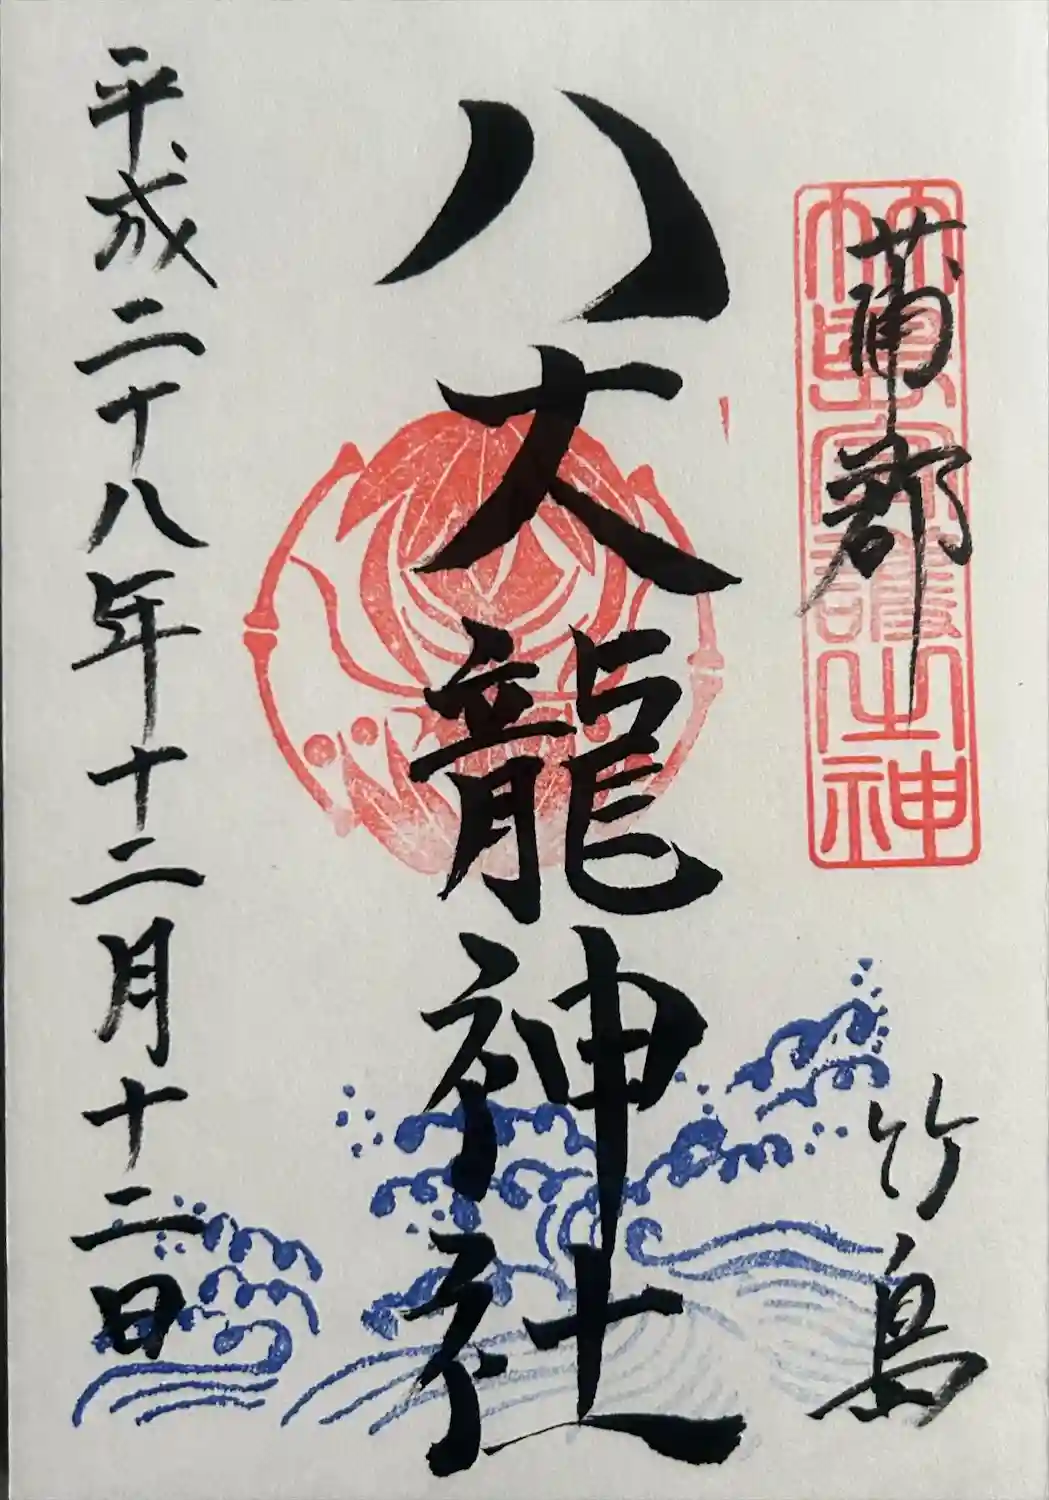 蒲郡
竹島
竹島守護之神
八大龍神社
平成二十八年十二月十二日